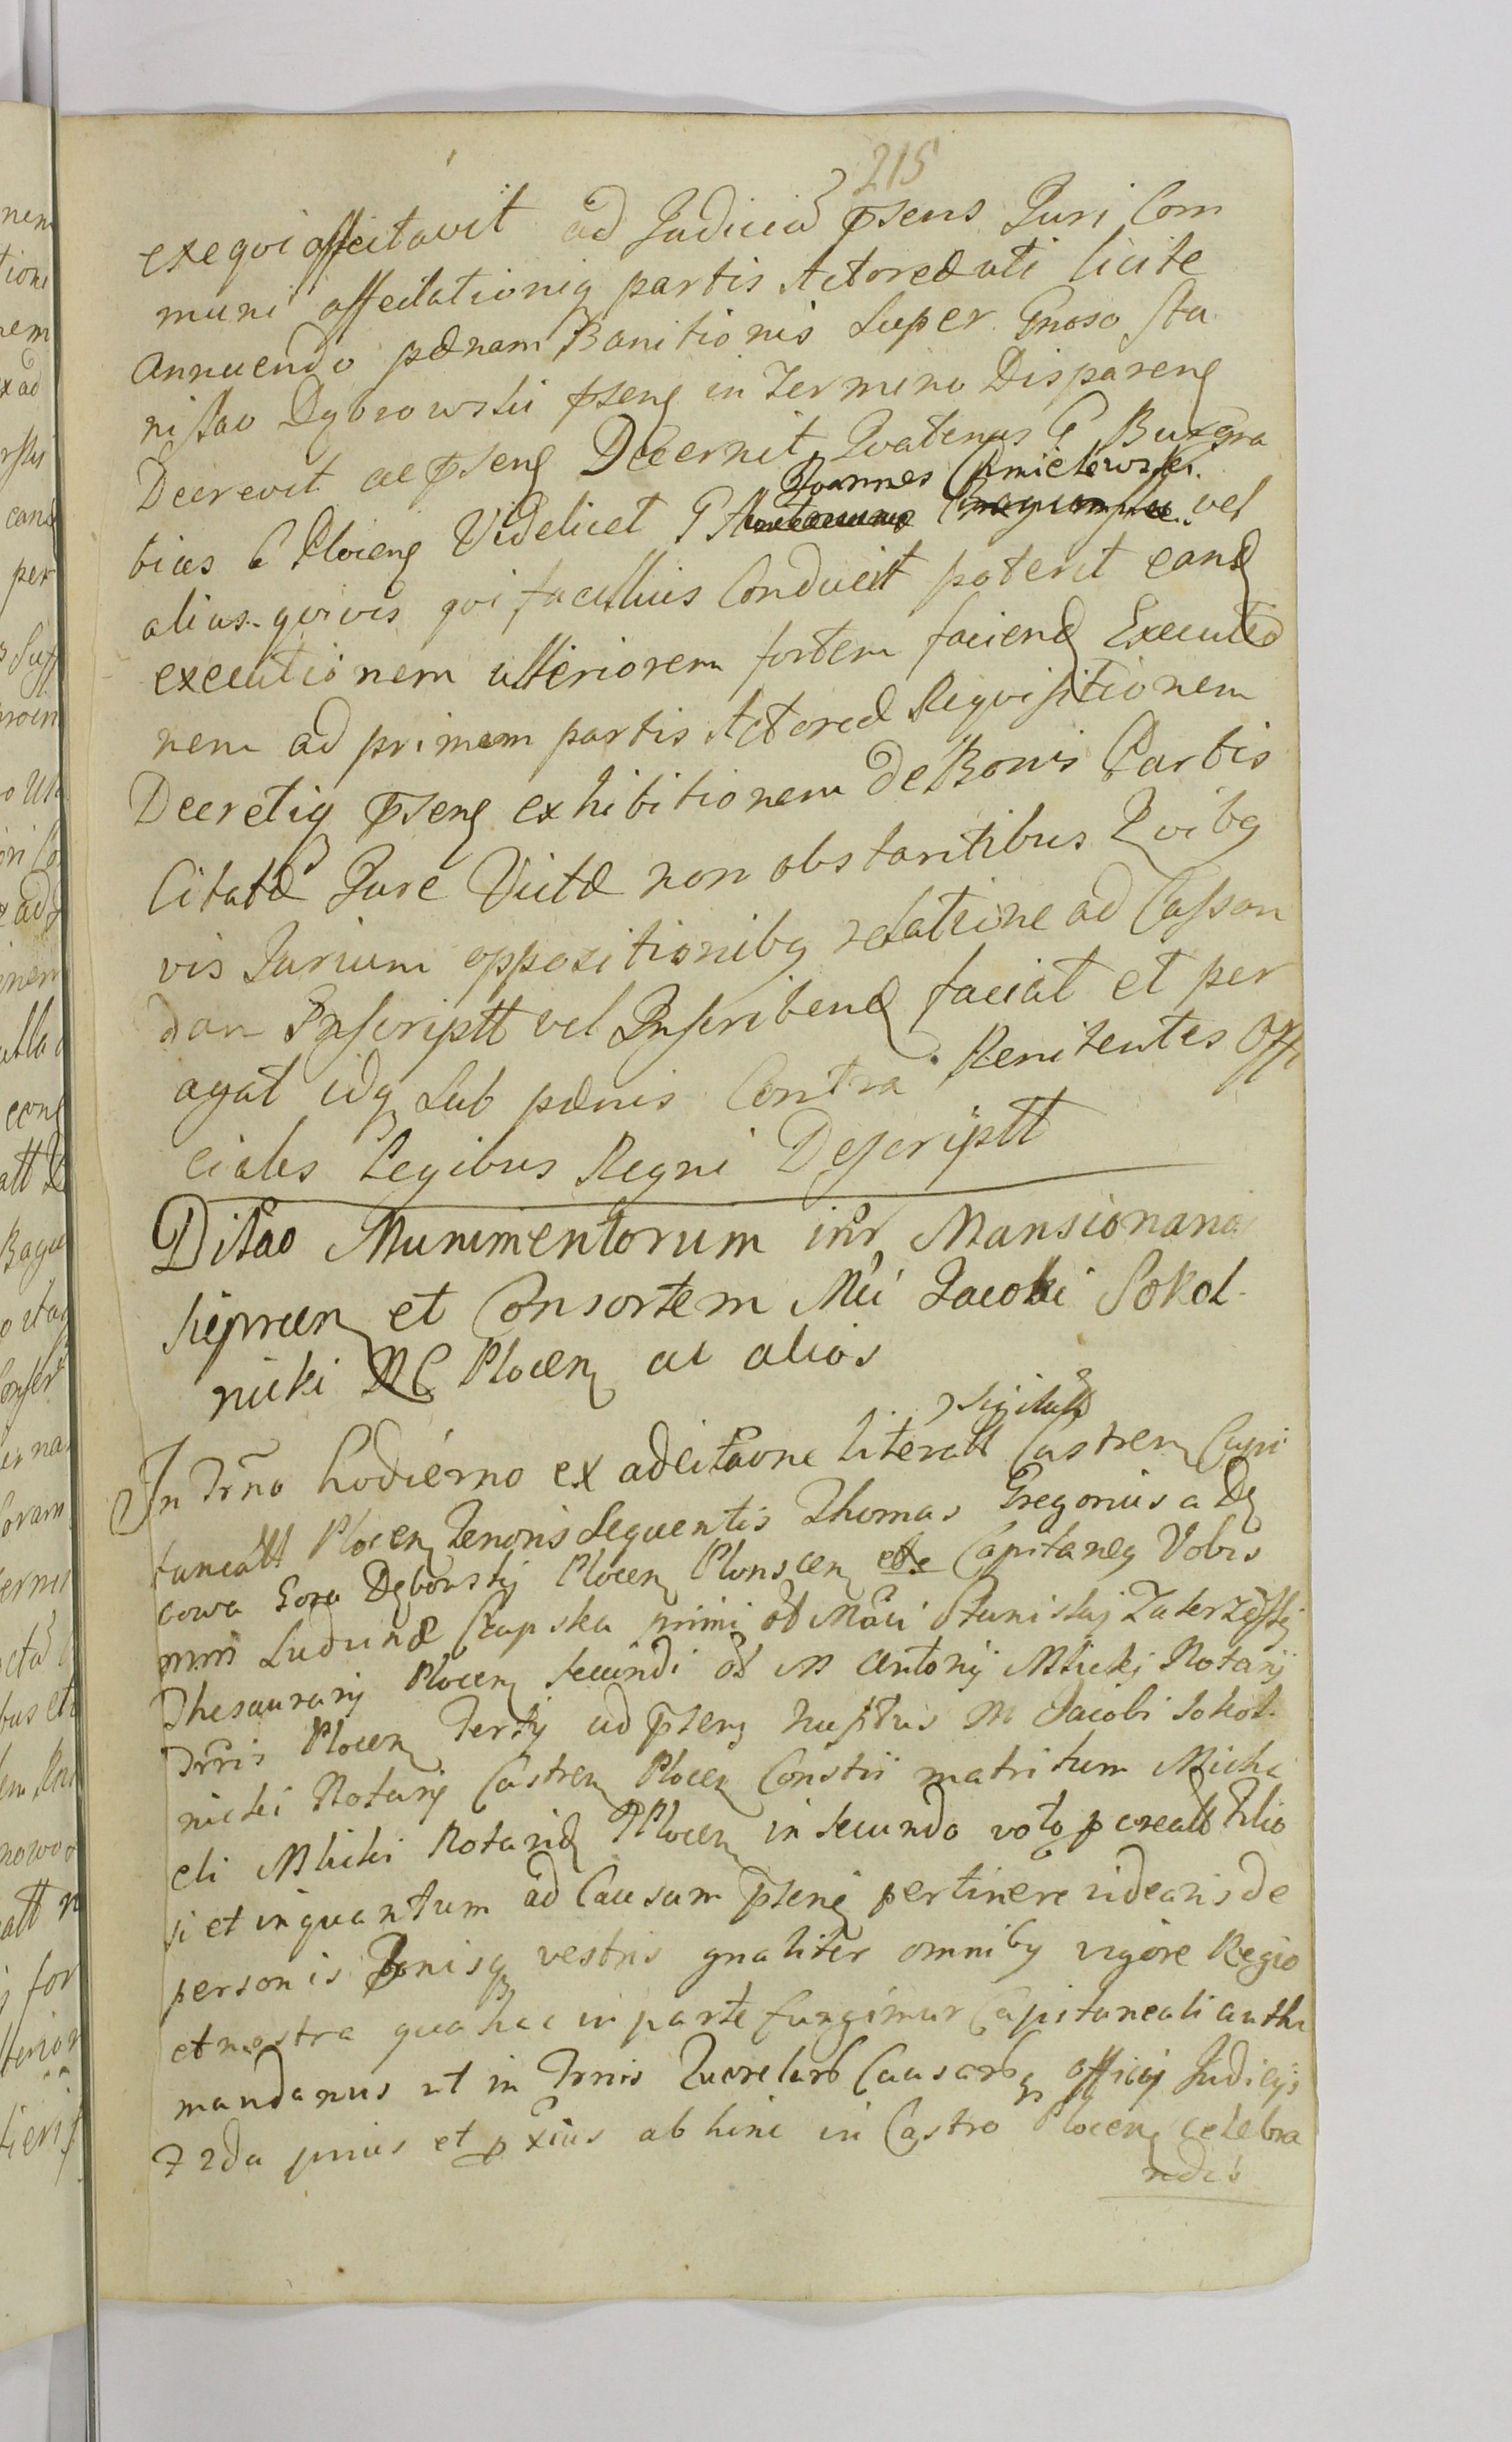 215
exeqvi affectavit ad Judiciũ p̃sens Juri Com
muni affectationiq partis Actoreæ uti licite
Annuendo pænam Banitionis Super Gnoso Sta
nislao Dąbrowski p̃senq in Termino Disparenq
Decrevit ac p̃senq Decernit Qvatenus G Burgra
bius C Plocenq Videlicet G Joannes Chmielewski vel
alius qvivis qvi facilius Conducit poterit eand
executionem ulteriorem fortem faciend Executio
nem ad primam partis Actoreæ Reqvisitionem
Decretiq p̃senq exhibitionem de Bonis Partis
Citatæ Jure Victæ non obstantibus Qvibq
vis Jurium oppositionibq relatione ad Casson
dam Inscriptt vel Inscribend faciat et per
agat idq Sub pænis Contra Renitentes Offi
ciales Legibus Regni Descriptt
Ditao Munimentorum intr Mansionarios
Sieprcen et Consortem Mci Jacobi Sokol
nicki NC Plocen ac alios
In Trno hodierno ex adcitaone literall sigillo Castren Capi
taneall Plocen Tenoris Seqventis Thomas Gregorius a Dę
bowa Gora Dębowsky Plocen Plonscen etc Capitaneq Vobis
mm Ludvinæ Czapska primi ob Mäci Stanislaj Zakrzęskj
Thesaurarij Plocen secundi ob M Antonij Mlickj Notarij
Trris Plocen Tertij ad p̃senq nuptus M Jacobi Sokol
nicki Notarij Castren Plocen Constii matri tum Micha
eli Mlicki Notarid TPlocen in secundo voto pcreatt filio
si et inquantum ad Causam p̃senq pertinere videaris de
personis Bonisq vestris gnaliter omnibq vigore Regio
et nostra qua hac in parte fungimur Capitaneali autht
mandamus ut in Trnis Qvorelarb Causarbq Officij Judicijs
Frda prius et pxius ab hinc in Castro Plocen celebra
ndis